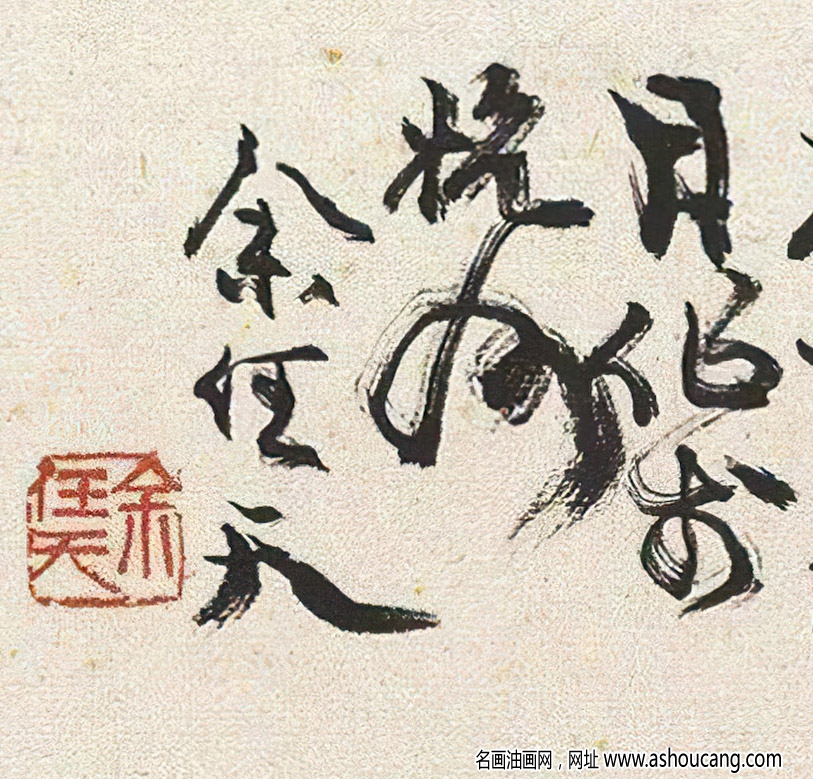 月作於
杭州
余任天
余任天
名画油画网，网址 www.ashoucang.com